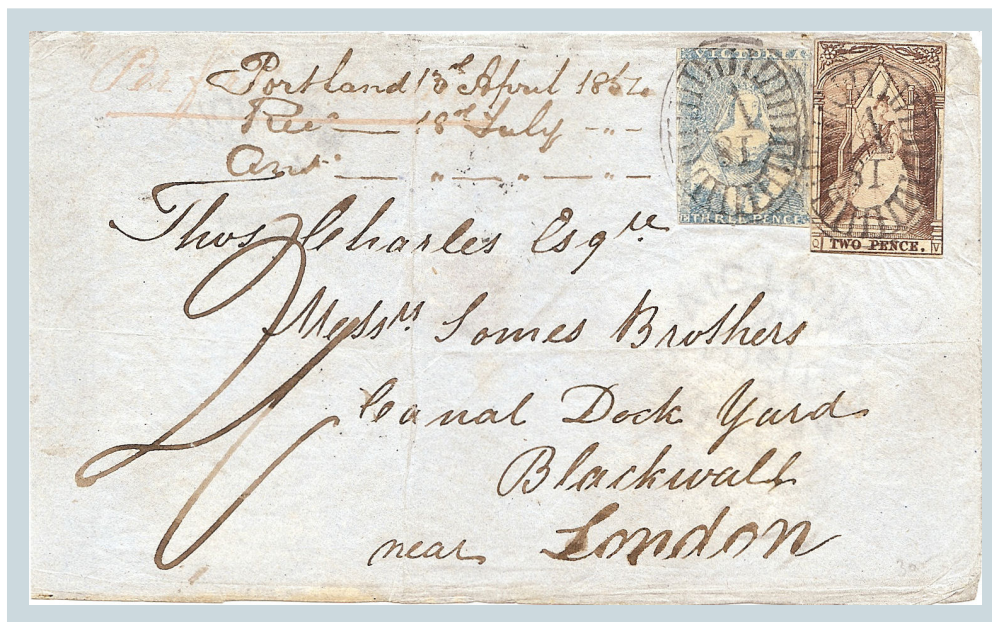 Per
Portland 13th April 1854
Rec 18th July " "
Ans " " " "
VICTORIA
V
18
THREE PENCE
V
18
Q TWO PENCE. V
Thos Charles Esqre
Messrs Somes Brothers
Canal Dock Yard
Blackwall
near London